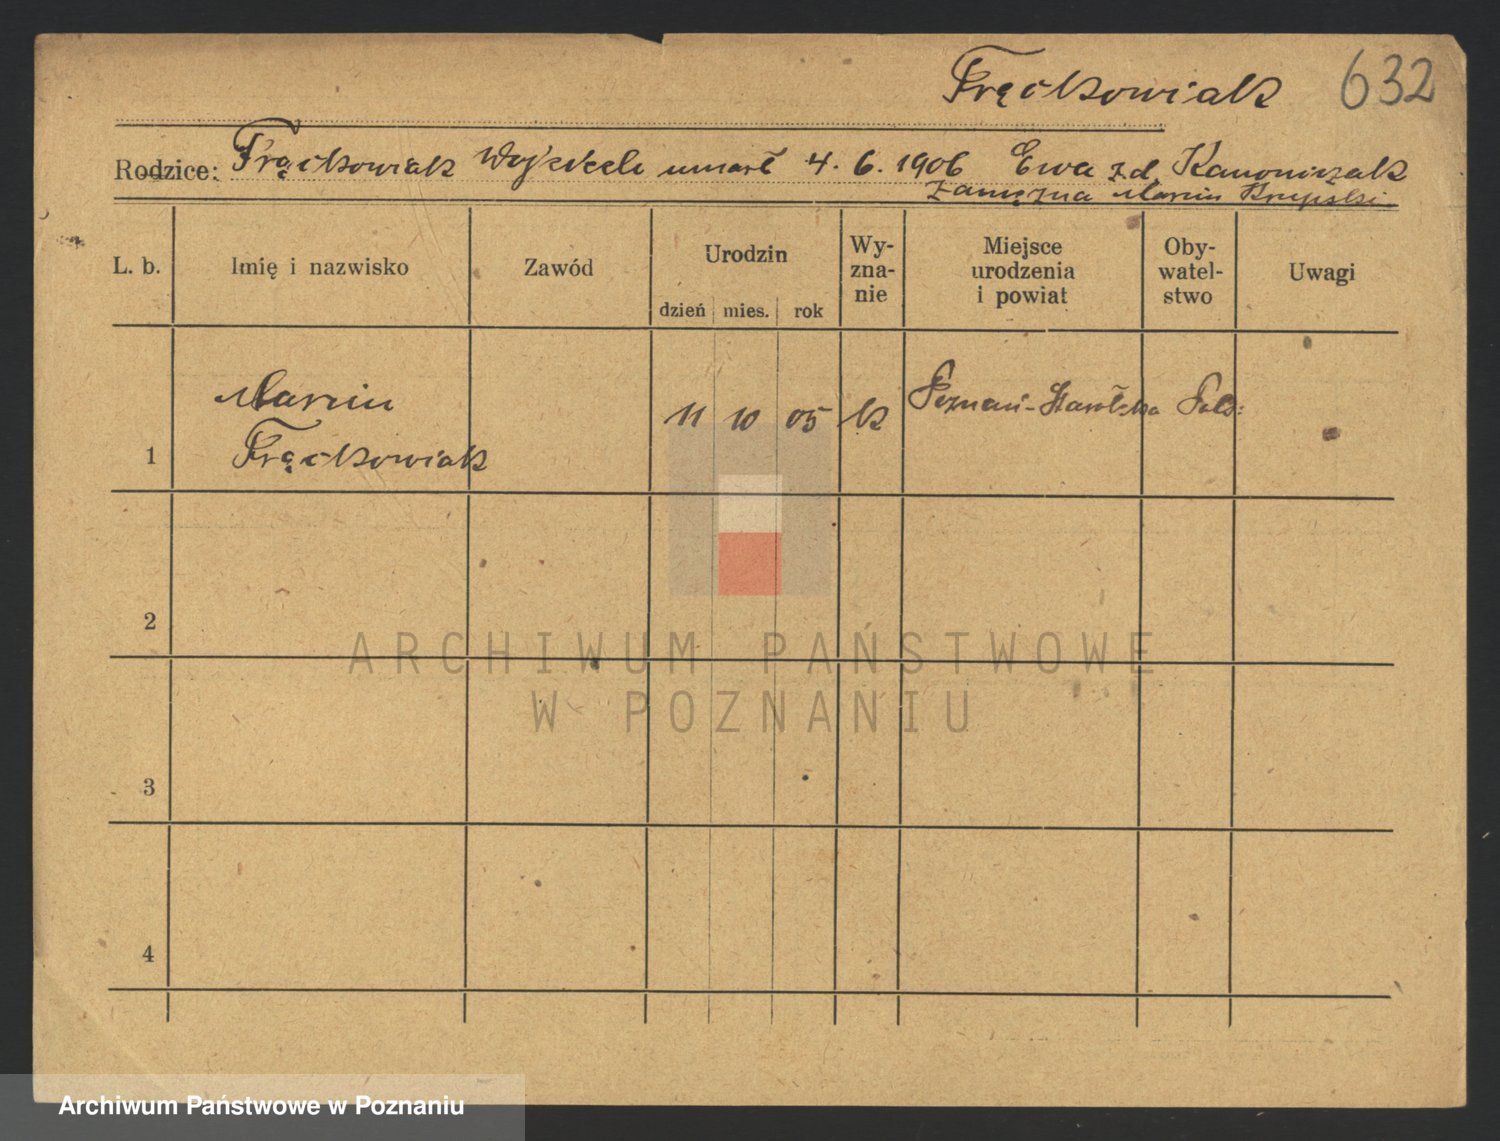 Frąckowiak 632
Rodzice: Frąckowiak Wojciech umarł 4. 6. 1906 Ewa z d. Kanoniczak
zamężna Marcin Krupski
L. b. Imię i nazwisko Zawód Urodzin Wy-
zna-
nie Miejsce
urodzenia
i powiat Oby-
watel-
stwo Uwagi
dzień mies. rok
1 Marcin
Frąckowiak 11 10 05 k Poznań-Starołęka Pols:
2
3
4
ARCHIWUM PAŃSTWOWE
W POZNANIU
Archiwum Państwowe w Poznaniu